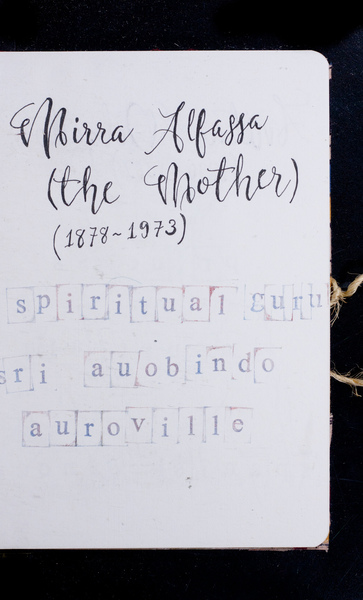 Mirra Alfassa
(the Mother)
(1878~1973)
spiritual guru
sri auobindo
auroville